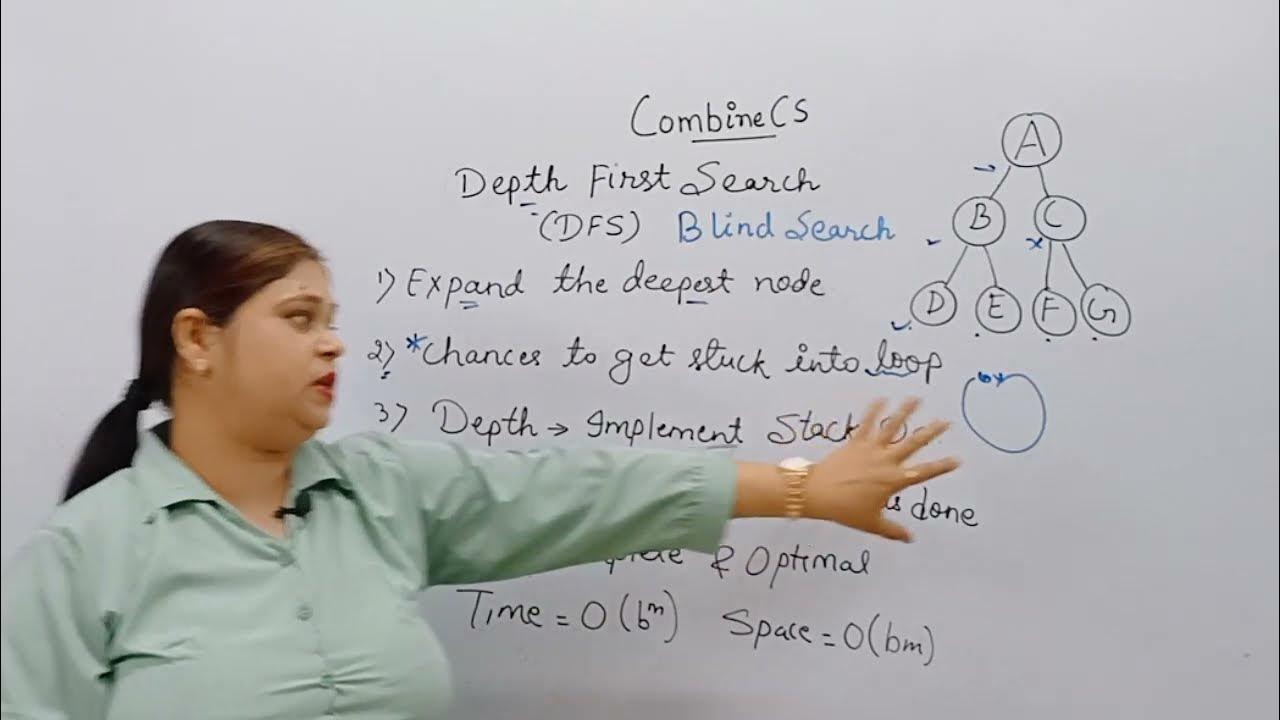 CombineCS
Depth First Search
(DFS) Blind Search
1) Expand the deepest node
2) *Chances to get stuck into loop
3) Depth → Implement Stack
is done
& Optimal
Time = O(b^m) Space = O(bm)
A
B C
D E F G